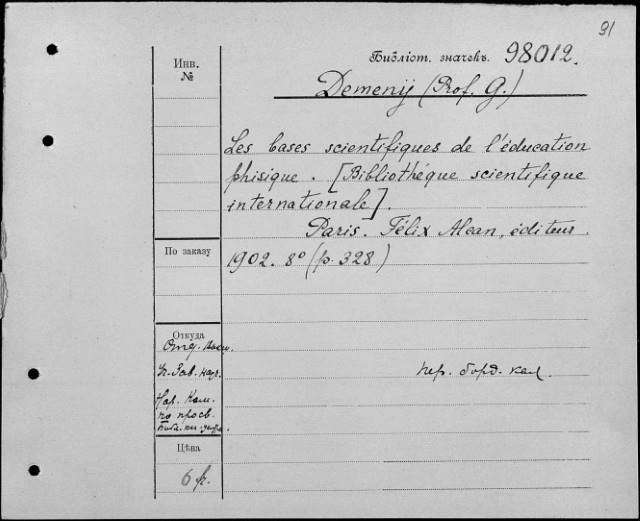 91
Инв.
№
Библіот. значекъ 98012.
Demenij (Prof. G.)
Les bases scientifiques de l'éducation
phisique. [Bibliothéque scientifique
internationale].
Paris. Félix Alcan, éditeur.
По заказу
1902. 8º (p. 328)
Откуда
Отд.
пер. борд. кал.
Нар. Ком.
по просв.
Цѣна
6 р.